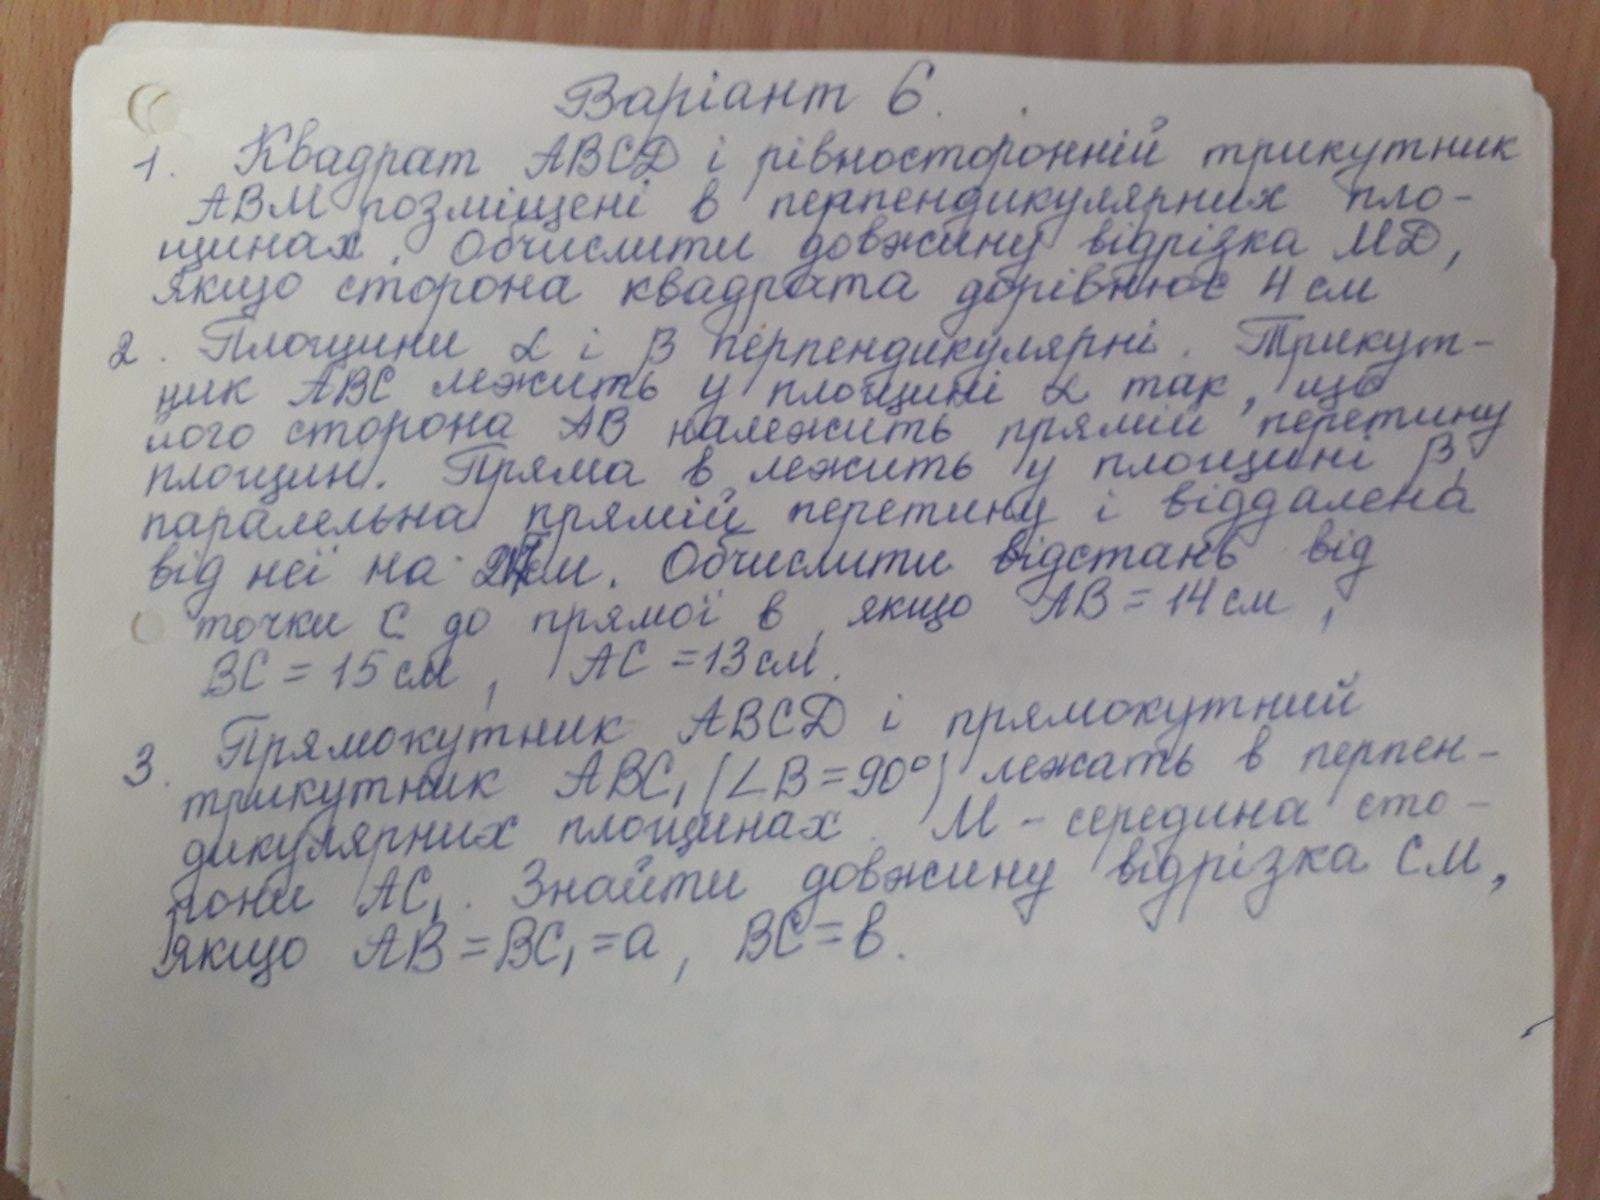 Варіант 6.
1. Квадрат ABCD і рівносторонній трикутник
ABM розміщені в перпендикулярних пло-
щинах. Обчислити довжину відрізка MD,
якщо сторона квадрата дорівнює 4 см
2. Площини α і β перпендикулярні. Трикут-
ник ABC лежить у площині α так, що
його сторона AB належить прямій перетину
площин. Пряма в лежить у площині β,
паралельна прямій перетину і віддалена
від неї на см. Обчислити відстань від
точки C до прямої в, якщо AB = 14 см,
BC = 15 см, AC = 13 см.
3. Прямокутник ABCD і прямокутний
трикутник ABC₁ (∠B = 90°) лежать в перпен-
дикулярних площинах. M - середина сто-
рони AC₁. Знайти довжину відрізка CM,
якщо AB = BC₁ = a, BC = в.